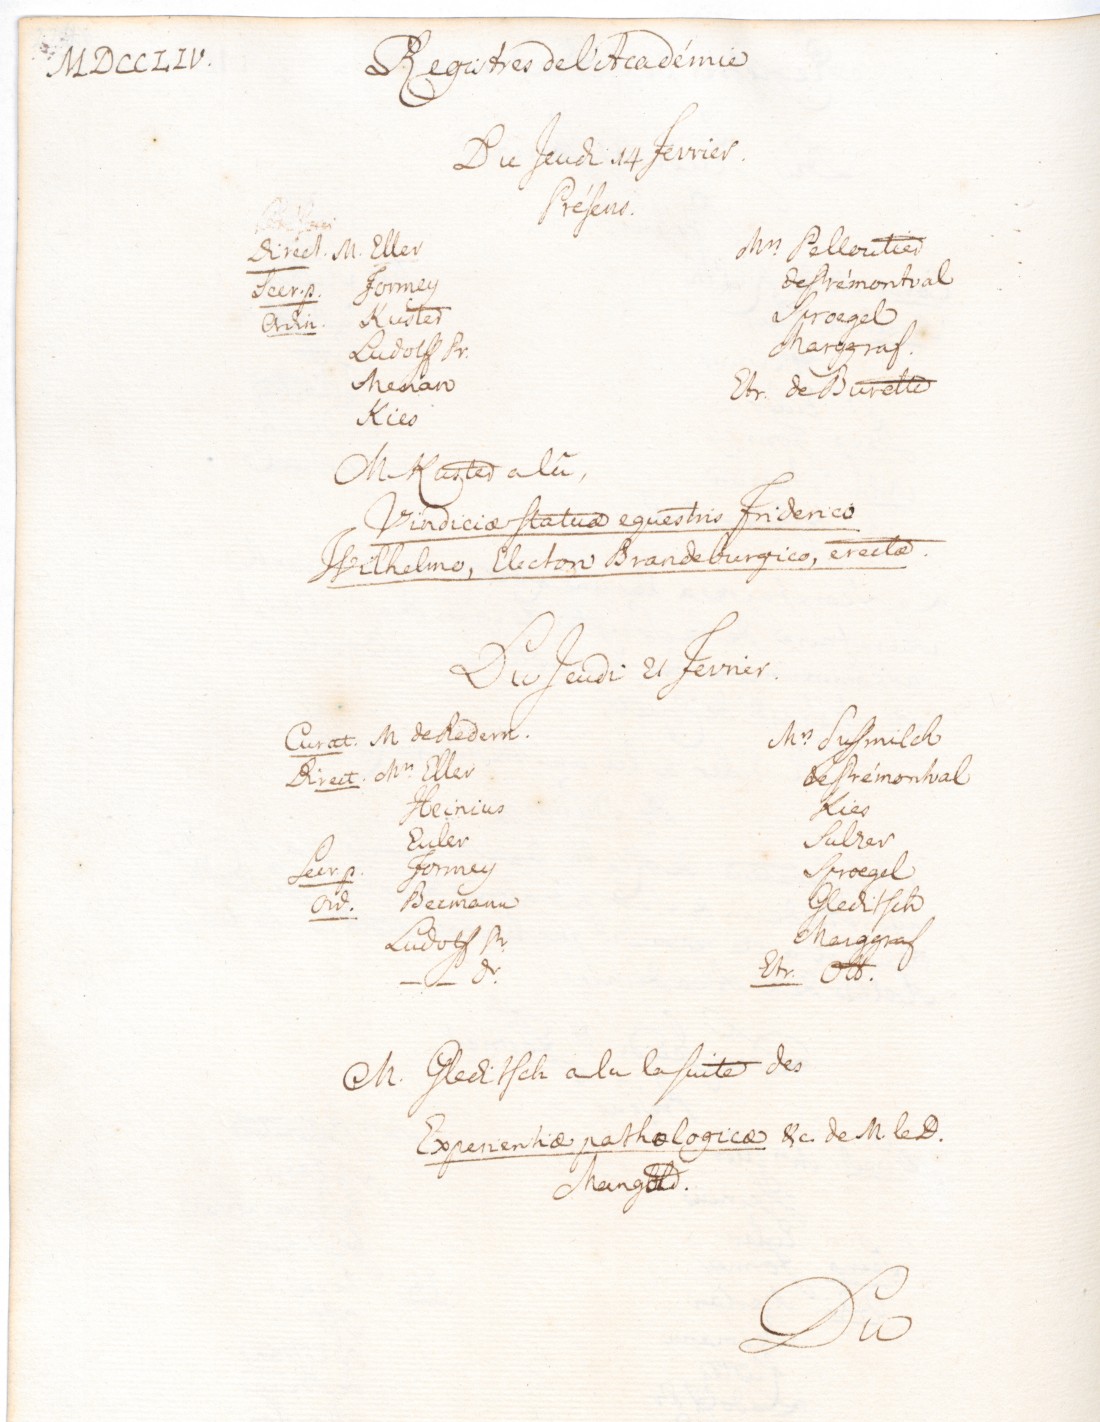 MDCCLIV.
Registres de l'Académie
Du Jeudi 14 Fevrier.
Présens.
Direct. M. Eller
Secr. p. Formey
Ordin. Kuster
Ludolff Pr.
Merian
Kies
Mrs Pelloutier
de Prémontval
Sproegel
Marggraf.
Etr. de Burette
M. Kuster a lû,
Vindiciæ statuæ equestris Friderico
Wilhelmo, Electori Brandeburgico, erectæ.
Du Jeudi 21 Fevrier.
Curat. M. de Redern.
Direct. Mrs Eller
Heinius
Euler
Secr. p. Formey
Ord. Becmann
Ludolff Pr.
— — dr.
Mrs Susmilch
de Prémontval
Kies
Sulzer
Sproegel
Gleditsch
Marggraf
Etr. Ott.
M. Gleditsch a lu la suite des
Experientiæ pathologicæ &c. de M. le D.
Mangold.
Du